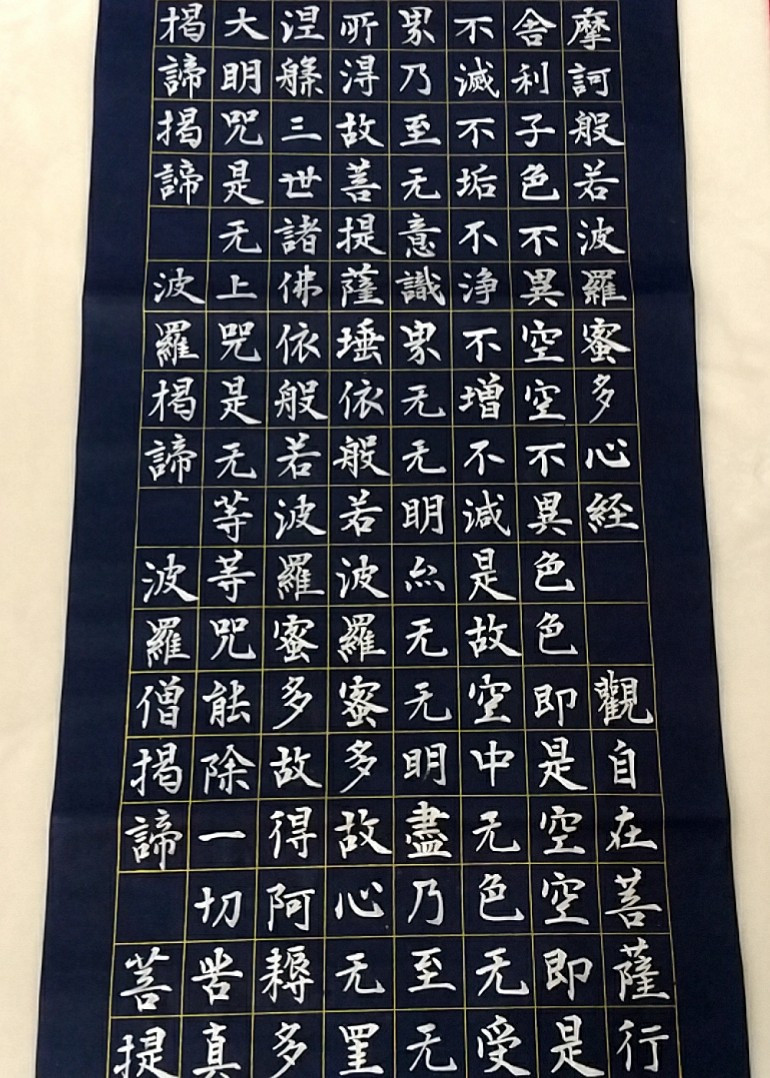 摩訶般若波羅蜜多心経 觀自在菩薩行
舎利子色不異空空不異色色即是空空即是
不滅不垢不浄不增不減是故空中无色无受
界乃至无意識界无无明亦无无明盡乃至无
所得故菩提薩埵依般若波羅蜜多故心无罣
涅槃三世諸佛依般若波羅蜜多故得阿耨多
大明咒是无上咒是无等等咒能除一切苦真
揭諦揭諦 波羅揭諦 波羅僧揭諦 菩提